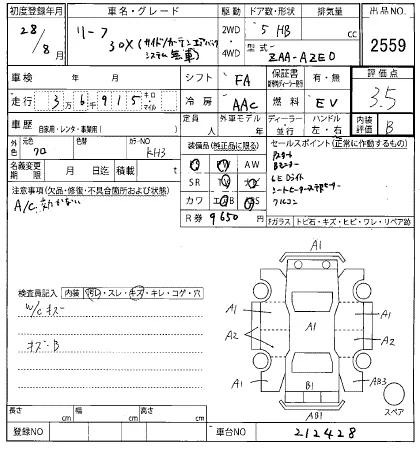 初度登録年月 車名・グレード 駆動 ドア数・形状 排気量 出品NO.
28/8月 リーフ 2WD・4WD 5 HB cc 2559
30X(サイドカーテンエアバッグシステム無車) 型式 ZAA-AZE0
車検 年 月 シフト FA 保証書 有・無 評価点
走行 3万6千915キロ・マイル 冷房 AAC 燃料 EV 3.5
車歴 自家用・レンタ・事業用( ) 定員 人 外車モデル 年 ディーラー・並行 ハンドル 左・右 内装評価 B
外色 元色 クロ 色替 カラーNO KH3
装備品(純正品に限る) セールスポイント(正常に作動するもの)
名義変更期限 月 日迄 積載 t
PS PW AW
SR TV ナビ
カワ エアB ABS
R券 9650 円
LEDライト
注意事項(欠品・修復・不具合箇所および状態)
A/C効かない
Fガラス トビ石・キズ・ヒビ・ワレ・リペア跡
検査員記入 内装 汚れ・スレ・キズ・キレ・コゲ・穴
A1
A1 A1
A2 A1 A2
A1 B1 AB3
AB1
スペア
長さ cm 幅 cm 高さ cm
登録NO 車台NO 212428